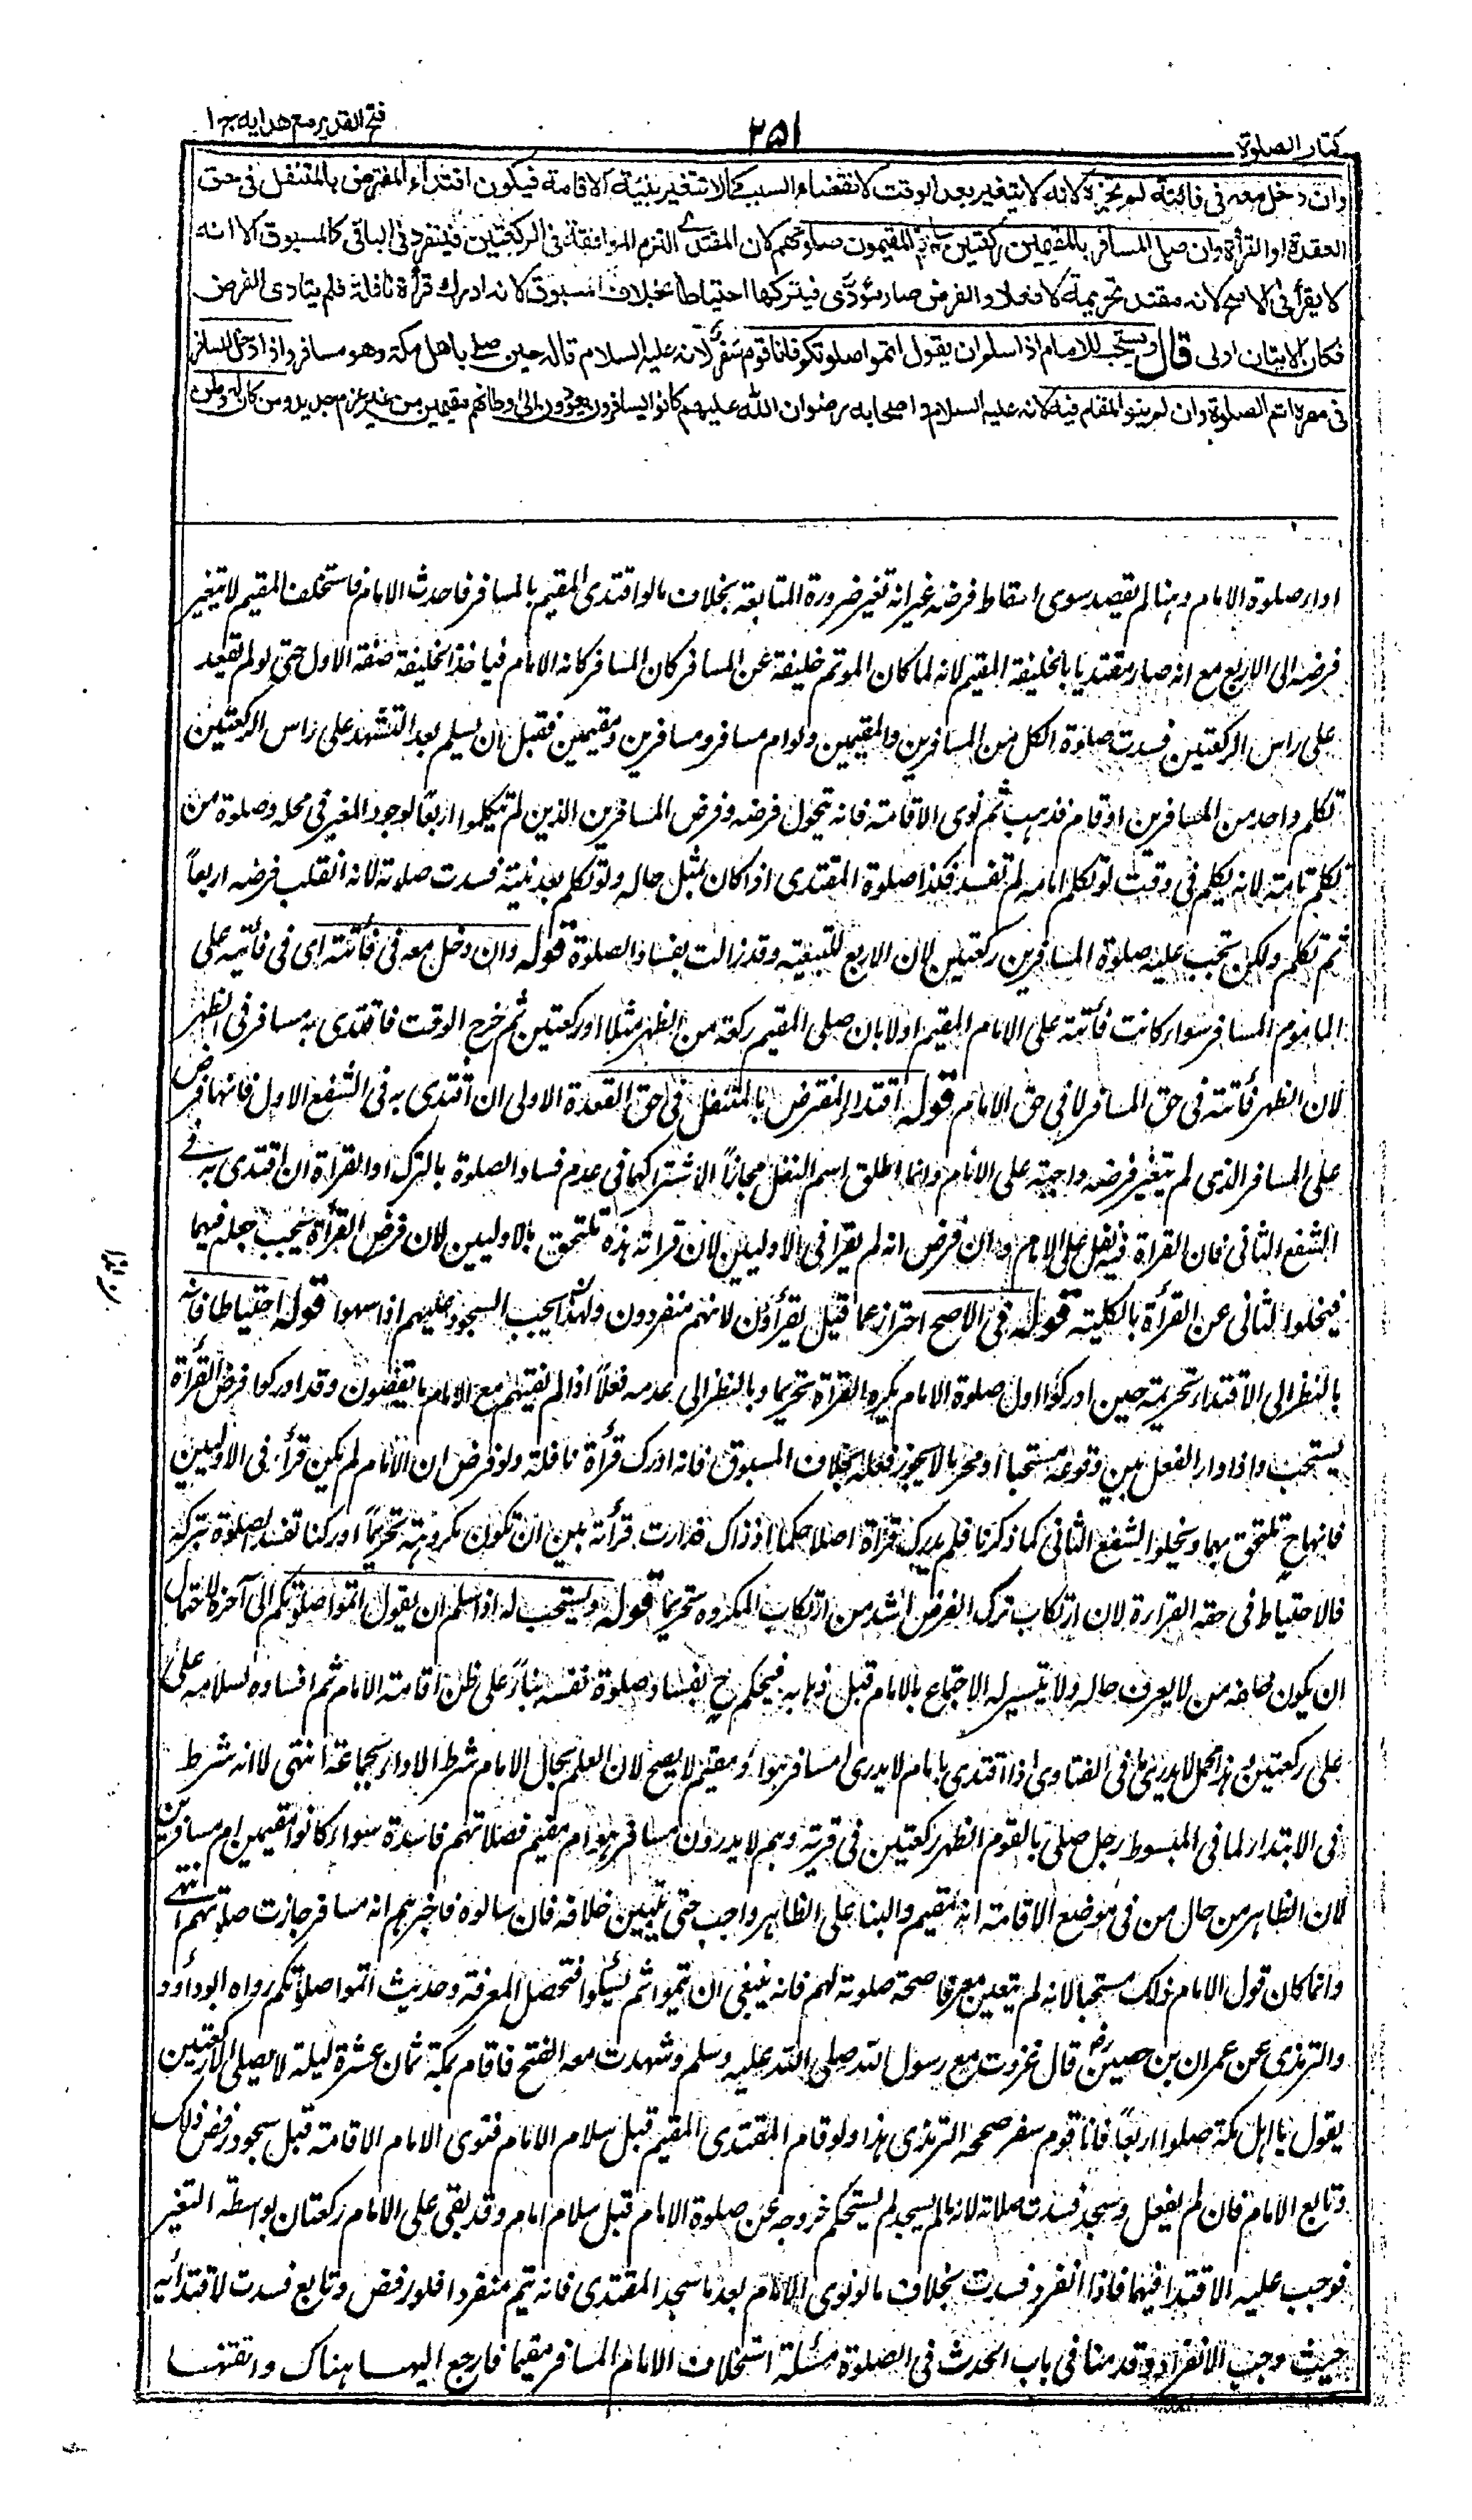 كتاب الصلوة
٢٥١
فتح القدير مع هدايه ج ١
وان دخل معه فى فائتة لم تجزه لانه لا يتغير بعد الوقت لانقضاء السبب كما لا تتغير بنية الاقامة فيكون اقتداء المفترض بالمتنفل فى حق
القعدة او القرأة وان صلى المسافر بالمقيمين ركعتين سلم واتم المقيمون صلوتهم لان المقتدى التزم الموافقة فى الركعتين فينفرد فى الباقى كالمسبوق الا انه
لا يقرأ فى الاصح لانه مقتد تحريمة لا فعلا والفرض صار مؤدى فيتركها احتياطا بخلاف المسبوق لانه ادرك قرأة نافلة فلم يتادى الفرض
فكان الاتيان اولى قال ويستحب للامام اذا سلم ان يقول اتموا صلوتكم فانا قوم سفر لانه عليه السلام قاله حين صلى باهل مكة وهو مسافر واذا دخل المسافر
فى مصره اتم الصلوة وان لم ينو المقام فيه لانه عليه السلام واصحابه رضوان الله عليهم كانوا يسافرون ويعودون الى اوطانهم مقيمين من غير عزم جديد ومن كان له وطن
اداء صلوة الامام وهنا لم يقصد سوى اسقاط فرضه غير انه تغير ضرورة المتابعة بخلاف ما لو اقتدى المقيم بالمسافر فاحدث الامام فاستخلف المقيم لا يتغير
فرضه الى الاربع مع انه صار مقتديا بالخليفة المقيم لانه لما كان الموتم خليفة عن المسافر كان المسافر كانه الامام فياخذ الخليفة صفة الاول حتى لو لم يقعد
على راس الركعتين فسدت صلوة الكل من المسافرين والمقيمين ولو ام مسافر ومسافرين ومقيمين فقبل ان يسلم بعد التشهد على راس الركعتين
تكلم واحد من المسافرين او قام فذهب ثم نوى الاقامة فانه يتحول فرضه وفرض المسافرين الذين لم يتكلموا اربعا لوجود المغير فى محله وصلوة من
تكلم تامة لانه تكلم فى وقت لو تكلم امامه لم تفسد فكذا صلوة المقتدى اذا كان بمثل حاله ولو تكلم بعد نيته فسدت صلوته لانه انقلب فرضه اربعاً
ثم تكلم ولكن تجب عليه صلوة المسافرين ركعتين لان الاربع للتبعية وقد زالت بفساد الصلوة قوله وان دخل معه فى فائتة اى فى فائتة على
الماموم المسافر سواء كانت فائتة على الامام المقيم اولا بان صلى المقيم ركعة من الظهر مثلا او ركعتين ثم خرج الوقت فاقتدى به مسافر فى الظهر
لان الظهر فائتة فى حق المسافر لا فى حق الامام قوله اقتداء المفترض بالمتنفل فى حق القعدة الاولى ان اقتدى به فى الشفع الاول فانها فرض
على المسافر الذى لم يتغير فرضه واجبة على الامام وانما اطلق اسم النفل مجازاً لاشتراكهما فى عدم فساد الصلوة بالترك او القرأة ان اقتدى به فى
الشفع الثانى فان القرأة فيه نفل على الامام وان فرض انه لم يقرا فى الاوليين لان قراته هذه تلتحق بالاوليين لان فرض القرأة يجب جعله فيهما
فيخلو الثانى عن القرأة بالكلية قوله فى الاصح احتراز عما قيل يقرأون لانهم منفردون ولهذا يجب السجود عليهم اذا سهوا قوله احتياطا فانه
بالنظر الى الاقتداء تحريمة حين ادركوا اول صلوة الامام يكره القرأة تحريما وبالنظر الى عدمه فعلاً اذا لم يفتهم مع الامام ما يقضون وقد ادركوا فرض القرأة
يستحب واذا دار الفعل بين وقوعه مستحبا او محرما لا يجوز فعله بخلاف المسبوق فانه ادرك قرأة نافلة ولو فرض ان الامام لم يكن قرأ فى الاوليين
فانها ح تلتحق بهما ويخلو الشفع الثانى كما ذكرنا فلم يدرك قرأة اصلا حكما اذ ذاك فدارت قرأته بين ان تكون مكروهة تحريماً او ركنا تفسد الصلوة بتركه
فالاحتياط فى حقه القراءة لان ارتكاب ترك الفرض اشد من ارتكاب المكروه تحريما قوله ويستحب له اذا سلم ان يقول اتموا صلوتكم الى آخره لاحتمال
ان يكون خلفه من لا يعرف حاله ولا يتيسر له الاجتماع بالامام قبل ذهابه فيحكم ح بفساد صلوة نفسه بناءً على ظن اقامة الامام ثم افساده بسلامه على
على ركعتين وهذا محمل ما فى الفتاوى اذا اقتدى بامام لا يدرى امسافر هو او مقيم لا يصح لان العلم بحال الامام شرط الاداء بجماعة انتهى لا انه شرط
فى الابتداء لما فى المبسوط رجل صلى بالقوم الظهر ركعتين فى قرية وهم لا يدرون مسافر هو ام مقيم فصلاتهم فاسدة سواء كانوا مقيمين ام مسافرين
لان الظاهر من حال من فى موضع الاقامة انه مقيم والبنا على الظاهر واجب حتى يتبين خلافه فان سالوه فاخبرهم انه مسافر جازت صلوتهم انتهى
وانما كان قول الامام ذلك مستحبا لانه لم يتعين معرفا صحة صلوته لهم فانه ينبغى ان يتموا ثم يسئلوا فتحصل المعرفة وحديث اتموا صلاتكم رواه ابو داؤد
والترمذى عن عمران بن حصين رض قال غزوت مع رسول الله صلى الله عليه وسلم وشهدت معه الفتح فاقام بمكة ثمان عشرة ليلة لا يصلى الا ركعتين
يقول يا اهل مكة صلوا اربعاً فانا قوم سفر صححه الترمذى هذا ولو قام المقتدى المقيم قبل سلام الامام فنوى الامام الاقامة قبل سجوده رفض ذلك
وتابع الامام فان لم يفعل وسجد فسدت صلاته لانه ما لم يسجد لم يستحكم خروجه عن صلوة الامام قبل سلام امام وقد بقى على الامام ركعتان بواسطة التغير
فوجب عليه الاقتدا فيهما فاذا انفرد فسدت بخلاف ما لو نوى الامام بعد ما سجد المقتدى فانه يتم منفردا فلو رفض وتابع فسدت لاقتدائه
حيث وجب الانفراد وقد منا فى باب الحدث فى الصلوة مسئلة استخلاف الامام المسافر مقيما فارجع اليها هناك واتقنها